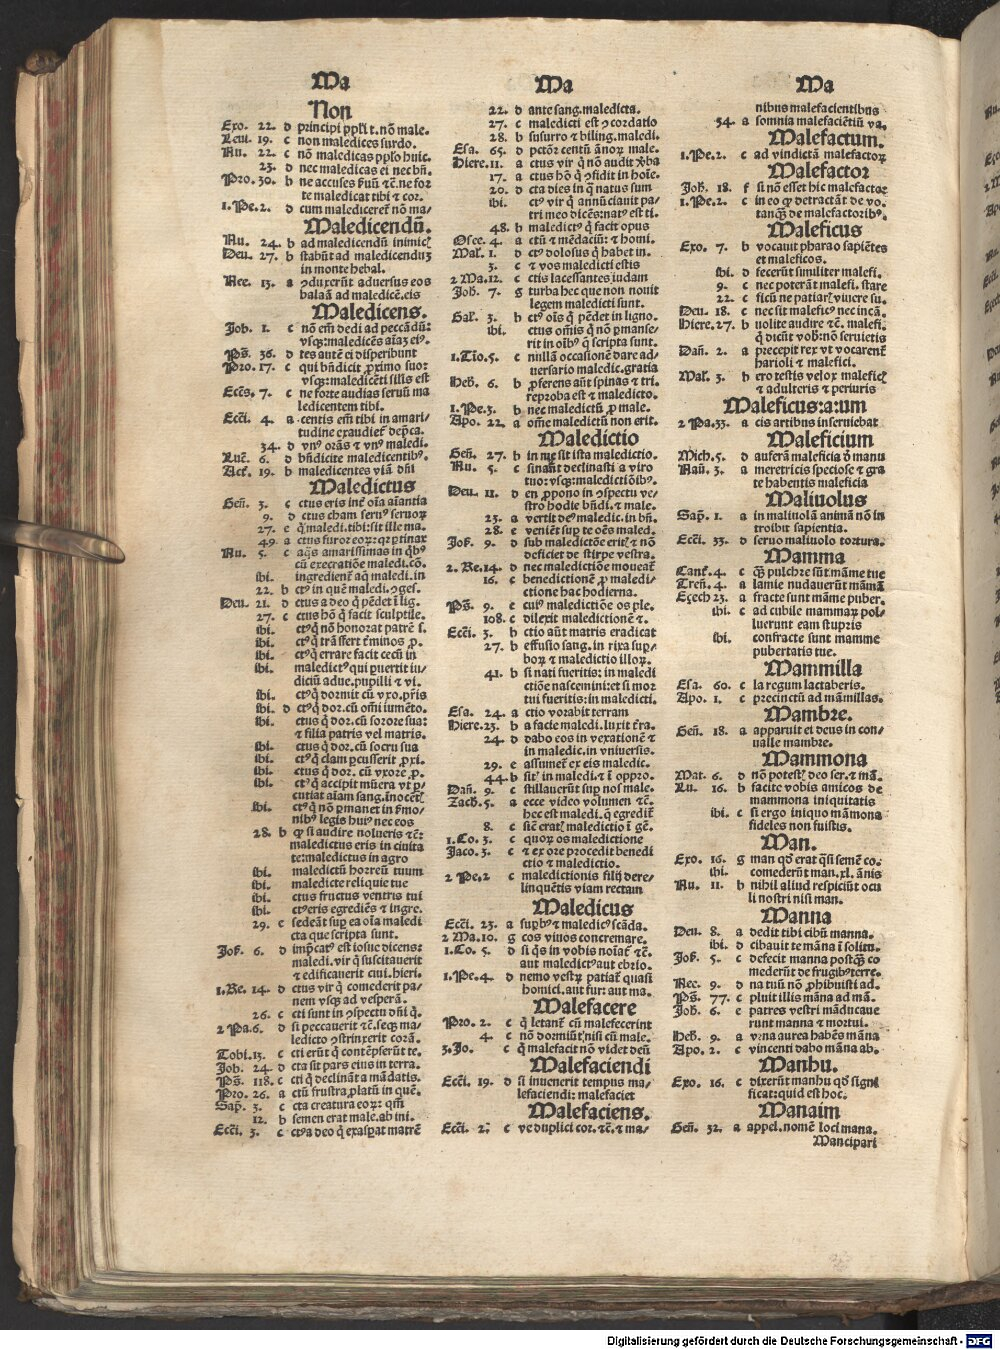 Ma
Non
Exo. 22. d principi ppłi t. nõ male.
Leui. 19. c non maledices surdo.
Nu. 22. c nõ maledicas pplo huic.
23. d nec maledicas ei nec bñ.
Pro. 30. b ne accuses ꝓuũ ⁊c̃. ne for
te maledicat tibi ⁊ cor.
1. Pe. 2. d cum malediceret̃ nõ ma/
Maledicendũ.
Nu. 24. b ad maledicendũ inimic̃
Deu. 27. b stabũt ad maledicenduʒ
in monte hebal.
Nee. 13. a ↄduxerũt aduersus eos
balaã ad maledicẽ. eis
Maledicens.
Job. 1. c nõ em̃ dedi ad peccãdũ:
vsqʒ: maledicẽs aĩaʒ eiꝰ.
Ps̃. 36. d tes autẽ ei disperibunt
Pro. 17. c qui bñdicit ꝓximo suo:
vsqʒ: maledicẽti sĩlis est
Ecc̃s. 7. c ne forte audias seruũ ma
ledicentem tibi.
Ecc̃i. 4. a centis em̃ tibi in amari/
tudine exaudiet̃ dep̃ca.
34. d vnꝰ orãs ⁊ vnꝰ maledi.
Luc̃. 6. d bñdicite maledicentibꝰ.
Act̃. 19. b maledicentes viã dñi
Maledictus
Geñ. 3. c ctus eris int̃ oĩa aĩantia
9. d ctus cham seruꝰ seruoꝝ
27. e q̃ maledi. tibi: sit ille ma.
49. a ctus furor eoꝝ: qꝛ ꝑtinax
Nu. 5. c aq̃s amarissimas in q̃bꝰ
cũ execratiõe maledi. cõ.
ibi. ingredient̃ aq̃ maledi. in
22. b ctꝰ in quẽ maledi. ↄges.
Deu. 21. d ctus a deo q̃ pẽdet ĩ lig.
27. c ctus hõ q̃ facit sculptile.
ibi. ctꝰ q̃ nõ honorat patrẽ s.
ibi. ctꝰ q̃ trãsfert t̃minos ꝓ.
ibi. ctꝰ q̃ errare facit cecũ in
ibi. maledictꝰ qui ꝑuertit iu/
diciũ adue. pupilli ⁊ vi.
ibi. ctꝰ q̃ dormit cũ vxo. pr̃is
ibi. d ctꝰ q̃ dor. cũ om̃i iumẽto.
ibi. ctus q̃ dor. cũ sorore sua:
⁊ filia patris vel matris.
ibi. ctus q̃ dor. cũ socru sua
ibi. ctꝰ q̃ clam ꝑcusserit ꝓxi.
ibi. ctus q̃ dor. cũ vxore ꝓ.
ibi. ctꝰ q̃ accipit mũera vt ꝑ/
cutiat aĩam sang. ĩnocẽt̃
ibi. ctꝰ q̃ nõ ꝑmanet in ẜmo/
nibꝰ legis huiꝰ nec eos
28. b qꝙ si audire nolueris ⁊c̃:
maledictus eris in ciuita
te: maledictus in agro
ibi. maledictũ horreũ tuum
ibi. maledicte reliquie tue
ibi. ctus fructus ventris tui
ibi. ctꝰ eris egrediẽs ⁊ ingre.
29. c sedeãt suꝑ ea oĩa maledi
cta que scripta sunt.
Jos. 6. d imp̃catꝰ est iosue dicens:
maledi. vir q̃ suscitauerit
⁊ edificauerit ciui. hieri.
1. Re. 14. d ctus vir q̃ comederit pa/
nem vsqʒ ad vesperã.
26. c cti sunt in ↄspectu dñi q̃.
2 Pa. 6. d si peccauerit ⁊c̃. seqʒ ma/
ledicto ↄstrinxerit corã.
Tobi. 13. c cti erũt q̃ contẽpserũt te.
Job. 24. d cta sit pars eius in terra.
Ps̃. 118. c cti q̃ declinãt a mãdatis.
Pro. 26. a ctũ frustra ꝓlatũ in quẽ.
Sap̃. 3. c cta creatura eoꝝ: qm̃
12. b semen erat male. ab ini.
Ecc̃i. 3. c ctꝰ a deo q̃ exasꝑat matrẽ
Ma
22. d ante sang. maledicta.
27. c maledicti est ↄcordatio
28. b susurro ⁊ biling. maledi.
Esa. 65. d pctõr centũ ãnoꝝ male.
Hiere. 11. a ctus vir q̃ nõ audit ꝟba
17. a ctus hõ q̃ ↄfidit in hoĩe.
20. d cta dies in q̃ natus sum
ibi. ctꝰ vir q̃ annũciauit pa/
tri meo dicẽs: natꝰ est ti.
48. b maledictꝰ q̃ facit opus
Osee. 4. a ctũ ⁊ mẽdaciũ: ⁊ homi.
Mal. 1. d ctꝰ dolosus q̃ habet in.
3. c ⁊ vos maledicti estis
2 Ma. 12. c ctis lacessantes iudam
Joh. 7. g turba hec que non nouit
legem maledicti sunt.
Gal. 3. b ctꝰ oĩs q̃ pẽdet in ligno.
ibi. ctus om̃is q̃ nõ ꝑmanse/
rit in oĩbꝰ q̃ scripta sunt.
1. Tio. 5. c nullã occasionẽ dare ad/
uersario maledic. gratia
Heb̃. 6. b ꝓferens aũt spinas ⁊ tri.
reproba est ⁊ maledicto.
1. Pe. 3. b nec maledictũ ꝓ male.
Apo. 22. a om̃e maledictũ non erit.
Maledictio
Geñ. 27. b in me sit ista maledictio.
Nu. 5. c sinaũt declinasti a viro
tuo: vsqʒ: maledictiõibꝰ.
Deu. 11. d en ꝓpono in ↄspectu ve/
stro hodie bñdi. ⁊ male.
23. a vertit deꝰ maledic. in bñ.
28. e veniẽt suꝑ te oẽs maled.
Jos. 9. d sub maledictõe erit̃ ⁊ nõ
deficiet de stirpe vestra.
2. Re. 14. d nec maledictiõe moueat̃
16. c benedictionẽ ꝓ maledi/
ctione hac hodierna.
Ps̃. 9. c cuiꝰ maledictiõe os ple.
108. c dilexit maledictionẽ ⁊.
Ecc̃i. 3. b ctio aũt matris eradicat
27. b effusio sang. in rixa suꝑ/
boꝝ ⁊ maledictio illoꝝ.
41. b si nati fueritis: in maledi
ctiõe nascemini: et si mor
tui fueritis: in maledicti.
Esa. 24. a ctio vorabit terram
Hiere. 23. b a facie maledi. luxit t̃ra.
24. d dabo eos in vexationẽ ⁊
in maledic. in vniuersis.
29. e assumet̃ ex eis maledic.
44. b sit̃ in maledi. ⁊ ĩ oppro.
Dañ. 9. c stillauerũt suꝑ nos male.
Zach. 5. a ecce video volumen ⁊c̃.
hec est maledi. q̃ egredit̃
8. c sic̃ erat̃ maledictio ĩ gẽ.
1. Co. 3. c quoꝝ os maledictione
Jaco. 3. c ⁊ ex ore procedit benedi
ctio ⁊ maledictio.
2 Pe. 2 c maledictionis filij dere/
linquẽtis viam rectam
Maledicus
Ecc̃i. 23. a suꝑbꝰ ⁊ maledicꝰ scãda.
2 Ma. 10. g cos viuos concremare.
1. Co. 5. d si q̃s in vobis noĩat̃ ⁊c̃.
aut maledictꝰ aut ebrio.
1. Pe. 4. d nemo vestꝝ patiat̃ quasi
homici. aut fur: aut ma.
Malefacere
Pro. 2. c q̃ letant̃ cũ malefecerint
4. c nõ dormiũt̃ nisi cũ male.
3. Jo. c q̃ malefacit nõ videt deũ
Malefaciendi
Ecc̃i. 19. d si inuenerit tempus ma/
lefaciendi: malefaciet
Malefaciens.
Ecc̃i. 2. c ve duplici cor. ⁊c̃. ⁊ ma/
Ma
nibus malefacientibus
34. a somnia malefaciẽtiũ va.
Malefactum.
1. Pe. 2. c ad vindictã malefactoꝝ
Malefactor
Joh. 18. f si nõ esset hic malefactor
1. Pe. 2. c in eo ꝙ detractãt de vo.
tanqʒ̃ de malefactoribꝰ.
Maleficus
Exo. 7. b vocauit pharao sapiẽtes
et maleficos.
ibi. d fecerũt similiter malefi.
9. c nec poterãt malefi. stare
22. c ficũ ne patiar̃ viuere su.
Deu. 18. c nec sit maleficꝰ nec incã.
Hiere. 27. b nolite audire ⁊c̃. malefi.
q̃ dicũt vob̃: nõ seruietis
Dañ. 2. a precepit rex vt vocarent̃
harioli ⁊ malefici.
Mal. 3. b ero testis velox malefic̃
⁊ adulteris ⁊ periuris
Maleficus: a: um
2 Pa. 33. a cis artibus inseruiebat
Maleficium
Mich. 5. d auferã maleficia ð manu
Naũ. 3. a meretricis speciose ⁊ gra
te habentis maleficia
Maliuolus
Sap̃. 1. a in maliuolã animã nõ in
troibit sapientia.
Ecc̃i. 33. d seruo maliuolo tortura.
Mamma
Cant̃. 4. c qʒ̃ pulchre sũt mãme tue
Treñ. 4. a lamie nudauerũt mãmã
Eʒech 23. a fracte sunt mãme puber.
ibi. c ad cubile mammaꝝ pol/
luerunt eam stupris
ibi. confracte sunt mamme
pubertatis tue.
Mammilla
Esa. 60. c la regum lactaberis.
Apo. 1. c precinctũ ad mãmillas.
Mambre.
Geñ. 18. a apparuit ei deus in con/
ualle mambre.
Mammona
Mat. 6. d nõ potest̃ deo ser. ⁊ mã.
Lu. 16. b facite vobis amicos de
mammona iniquitatis
ibi. c si ergo iniquo mãmona
fideles non fuistis.
Man.
Exo. 16. g man qð erat q̃si semẽ co.
ibi. comederũt man. xl. ãnis
Nu. 11. b nihil aliud respiciũt ocu
li nostri nisi man.
Manna
Deu. 8. a dedit tibi cibũ manna.
ibi. d cibauit te mãna ĩ solitu.
Jos. 5. c defecit manna postqʒ̃ co
mederũt de frugibꝰ terre.
Nee. 9. d na tuũ nõ ꝓhibuisti ad.
Ps̃. 77. c pluit illis mãna ad mã.
Joh. 6. e patres vestri mãducaue
runt manna ⁊ mortui.
Heb̃. 9. a vrna aurea habẽs mãna
Apo. 2. c vincenti dabo mãna ab.
Manhu.
Exo. 16. c dixerũt manhu qð signi
ficat: quid est hoc.
Manaim
Geñ. 32. a appel. nomẽ loci mana.
Mancipari
Digitalisierung gefördert durch die Deutsche Forschungsgemeinschaft - DFG